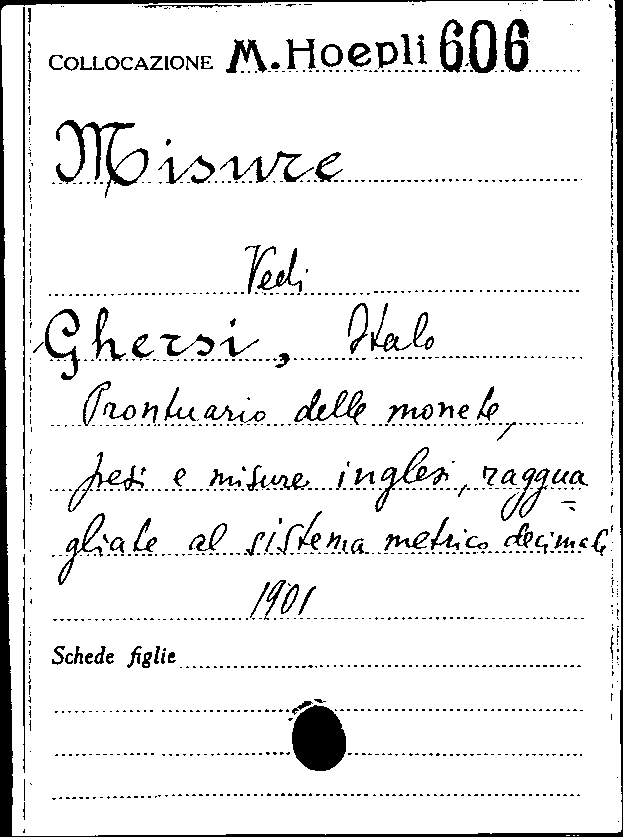 COLLOCAZIONE M.Hoepli 606
Misure
Vedi
Ghersi, Italo
Prontuario delle monete,
pesi e misure inglesi, raggua
gliate al sistema metrico decimale
1901
Schede figlie